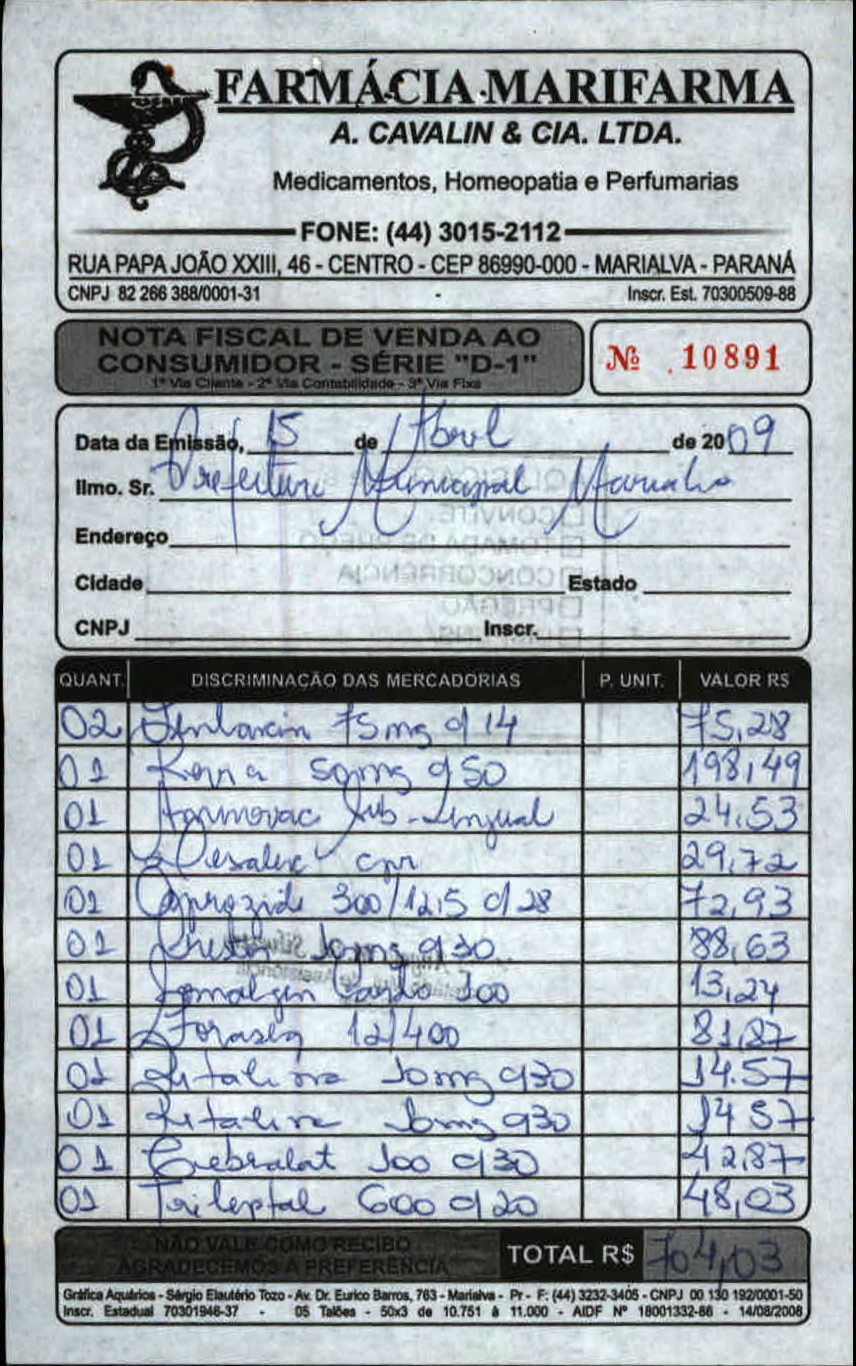 FARMÁCIA MARIFARMA
A. CAVALIN & CIA. LTDA.
Medicamentos, Homeopatia e Perfumarias
FONE: (44) 3015-2112
RUA PAPA JOÃO XXIII, 46 - CENTRO - CEP 86990-000 - MARIALVA - PARANÁ
CNPJ 82 266 388/0001-31 - Inscr. Est. 70300509-88
NOTA FISCAL DE VENDA AO
CONSUMIDOR - SÉRIE "D-1"
1ª Via Cliente - 2ª Via Contabilidade - 3ª Via Fixa
Nº 10891
Data da Emissão, 15 de Abril de 2009
Ilmo. Sr. Prefeitura Municipal Marialva
Endereço
Cidade Estado
CNPJ Inscr.
QUANT. DISCRIMINAÇÃO DAS MERCADORIAS P. UNIT. VALOR R$
02 75mg c/14 75,28
01 50mg c/50 198,49
01 Sub-Lingual 24,53
01 cpr 29,72
01 Aprozide 300/12,5 c/28 72,93
01 10mg c/30 88,63
01 Somalgin Cardio 100 13,24
01 Foraseq 12/400 81,87
01 Ritalina 10mg c/30 14.57
01 Ritalina 10mg c/30 14 57
01 Cebralat 100 c/30 42,87
01 Trileptal 600 c/20 48,03
NÃO VALE COMO RECIBO
AGRADECEMOS A PREFERÊNCIA
TOTAL R$ 704,03
Gráfica Aquários - Sérgio Elautério Tozo - Av. Dr. Eurico Barros, 763 - Marialva - Pr - F: (44) 3232-3405 - CNPJ 00 130 192/0001-50
Inscr. Estadual 70301946-37 - 05 Talões - 50x3 de 10.751 à 11.000 - AIDF Nº 18001332-86 - 14/08/2008